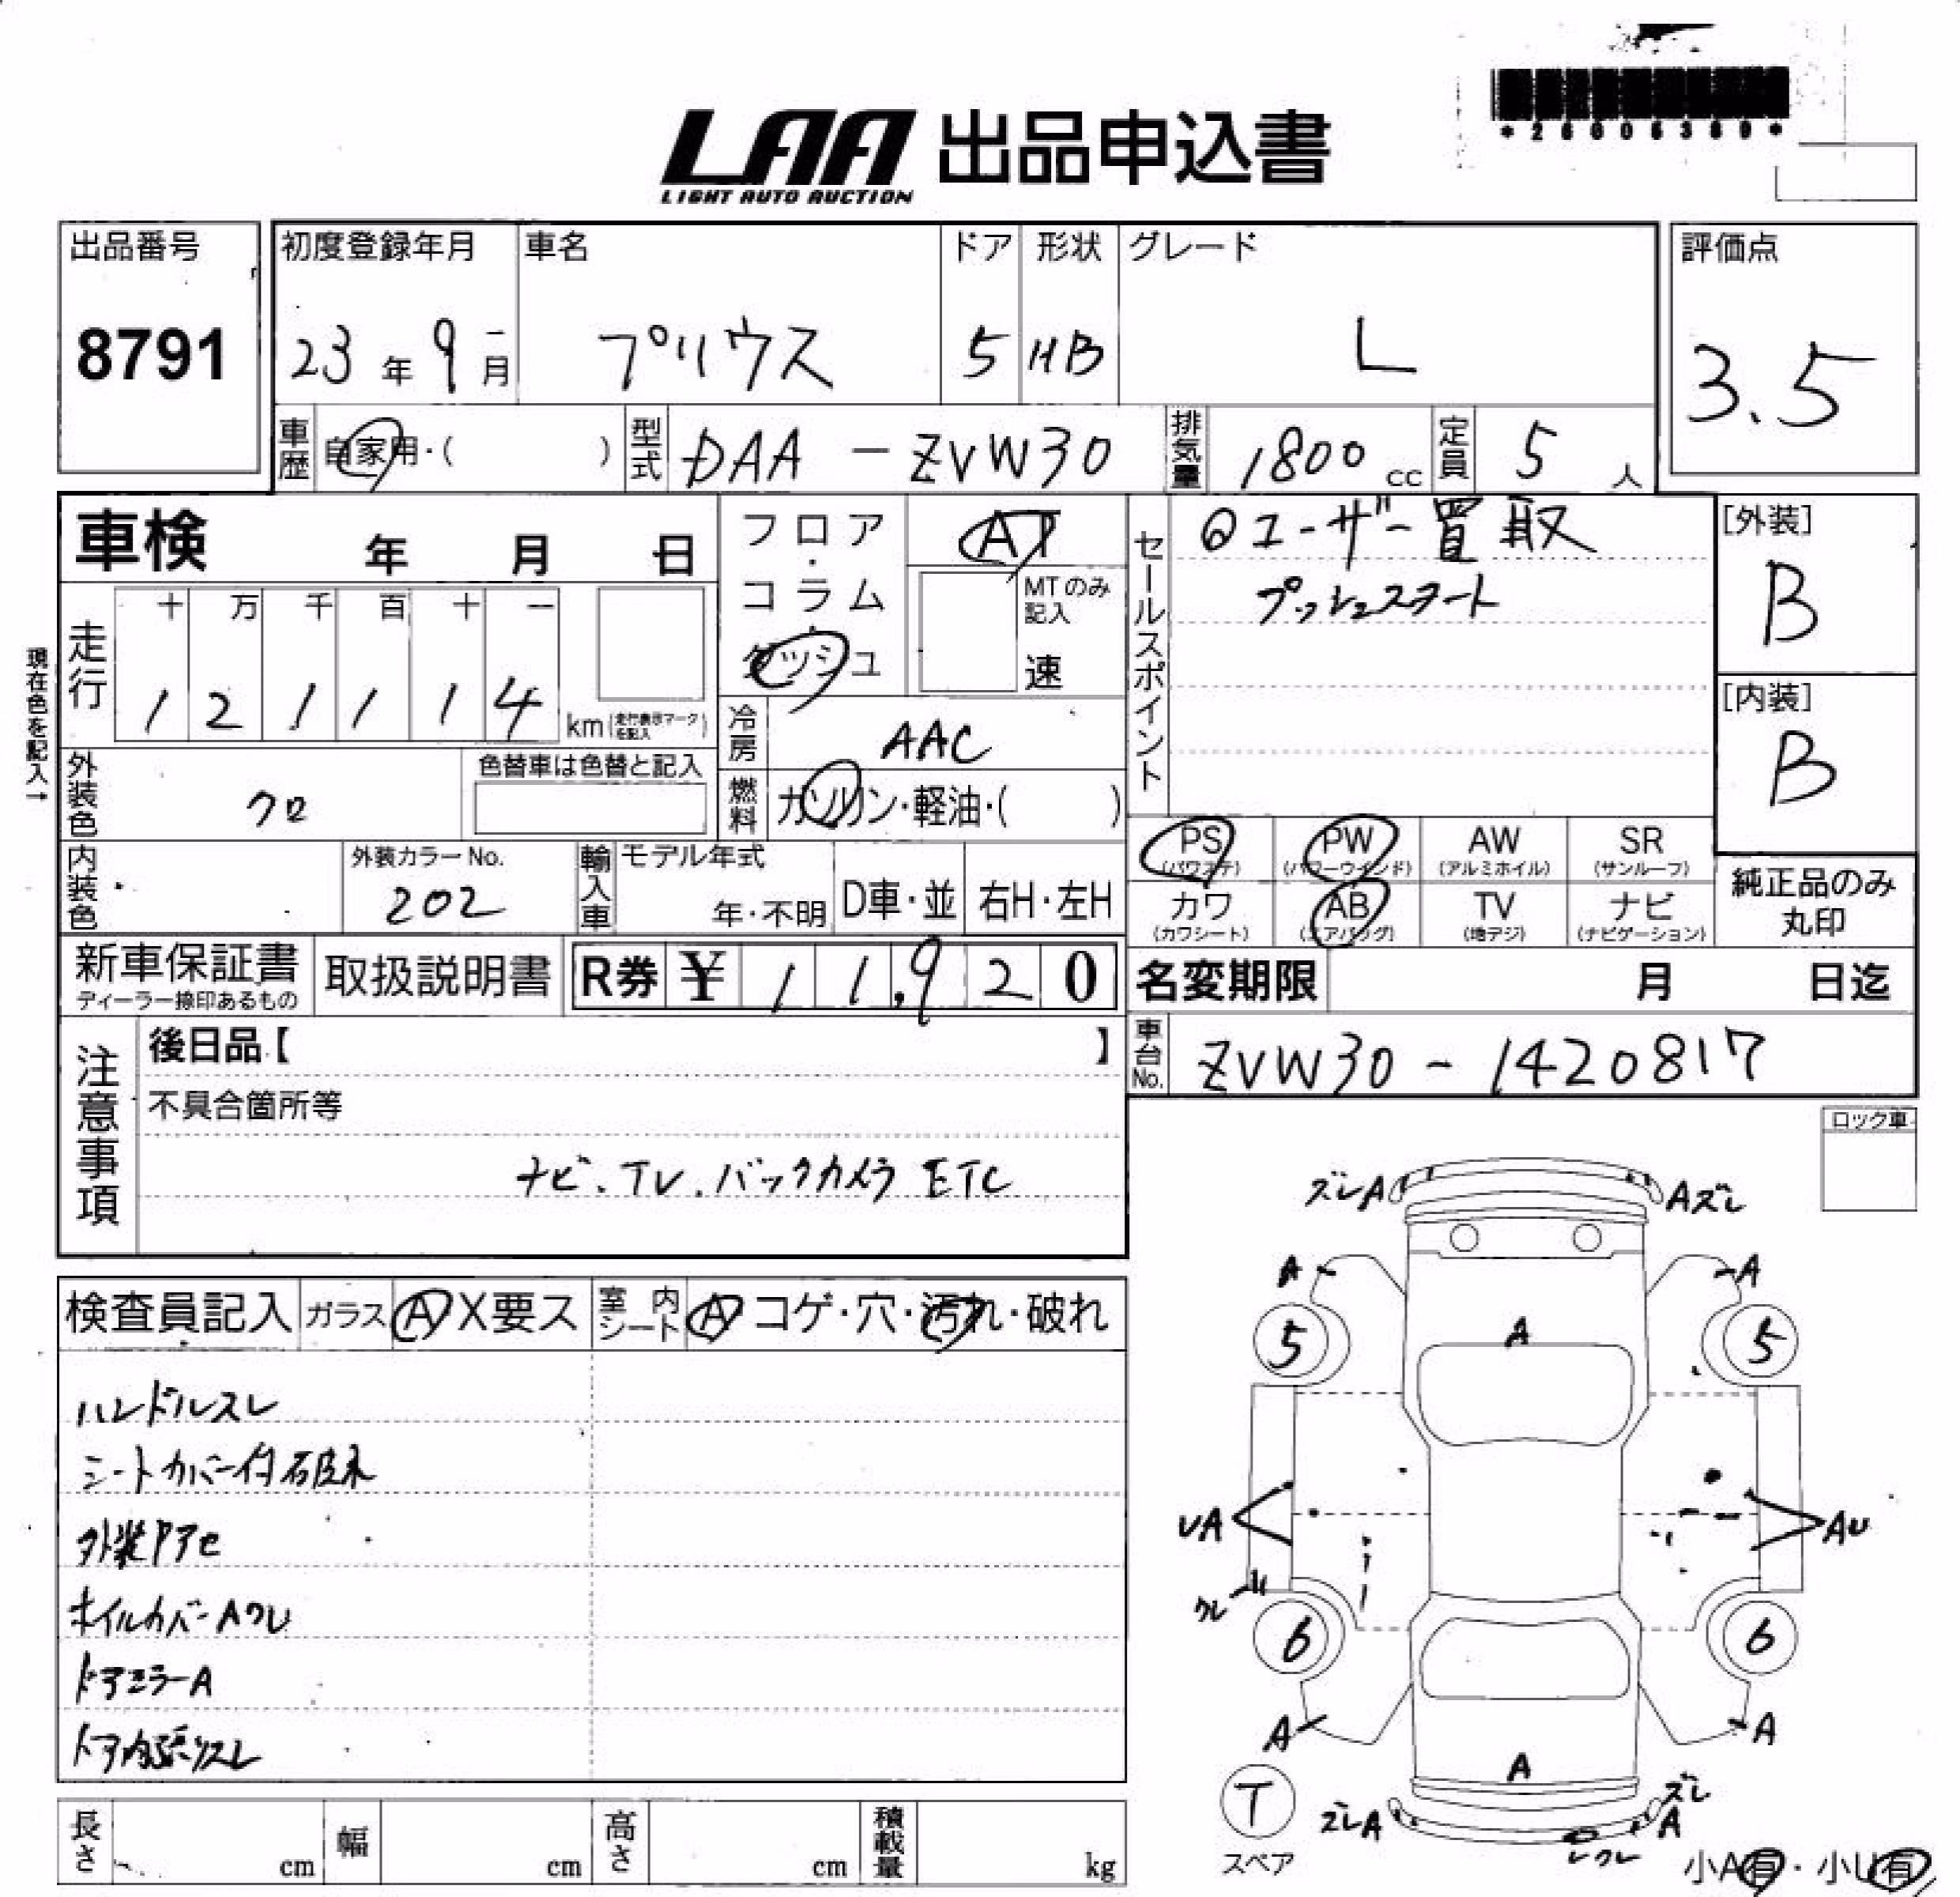 *26005389*
LAA 出品申込書
LIGHT AUTO AUCTION
出品番号 初度登録年月 車名 ドア 形状 グレード 評価点
8791 23年9月 プリウス 5 HB L 3.5
車歴 自家用・( ) 型式 DAA-ZVW30 排気量 1800cc 定員 5人
車検 年 月 日
フロア・コラム・ダッシュ
AT
MTのみ記入
速
セールスポイント
◎ユーザー買取
プッシュスタート
[外装]
B
[内装]
B
現在色を記入→
走行 十 万 千 百 十 一
1 2 1 1 1 4 km(走行表示マークを記入)
冷房 AAC
外装色 クロ 色替車は色替と記入
燃料 ガソリン・軽油・( )
内装色 外装カラーNo. 202
輸入車 モデル年式 年・不明 D車・並 右H・左H
PS (パワステ) PW (パワーウインド) AW (アルミホイル) SR (サンルーフ)
カワ (カワシート) AB (エアバッグ) TV (地デジ) ナビ (ナビゲーション)
純正品のみ丸印
新車保証書 ディーラー捺印あるもの 取扱説明書 R券 ¥ 11,920
名変期限 月 日迄
車台No. ZVW30-1420817
注意事項
後日品【 】
不具合箇所等
ナビ.TV.バックカメラ ETC
ロック車
検査員記入 ガラス A X要ス 室内シート A コゲ・穴・汚れ・破れ
ハンドルスレ
シートカバー付破れ
外装アセ
ホイルカバーAワレ
ドアミラーA
ドア内張リスレ
ズレA Aズレ
A A
5 A 5
UA AU
ワレ
6 6
A A
A
T
スペア
ズレA ズレ
A
小A有・小U有
長さ cm 幅 cm 高さ cm 積載量 kg